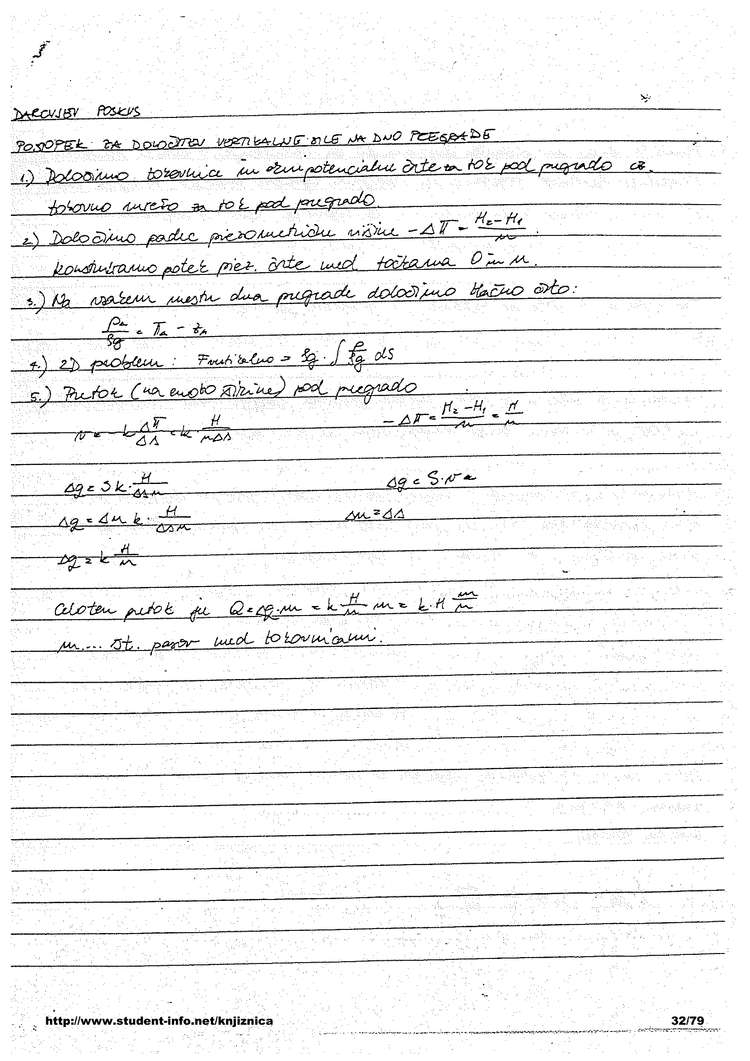 DARCYJEV POSKUS
POSTOPEK ZA DOLOČITEV VERTIKALNE SILE NA DNO PREGRADE
1.) Določimo tokovnice in ekvipotencialne črte za tok pod pregrado oz.
tokovno mrežo za tok pod pregrado.
2.) Določimo padec piezometrične višine -ΔΠ = (H₂-H₁)/n.
Konstruiramo potek piez. črte med točkama 0 in n.
3.) Na vsakem mestu dna pregrade določimo tlačno črto:
p_A/ρg = Π_A - z_A
4.) 2D problem: Fvertikalno = ρg·∫ p/ρg ds
5.) Pretok (na enoto širine) pod pregrado
v = -k ΔΠ/Δs = k·H/(nΔs) -ΔΠ = (H₂-H₁)/n = H/n
Δq = S k·H/(Δs n) Δq = S·v
Δq = Δn k·H/(Δs n) Δn = Δs
Δq = k H/n
Celoten pretok je Q = Δq·m = k H/n m = k·H m/n
m... št. pasov med tokovnicami.
http://www.student-info.net/knjiznica 32/79